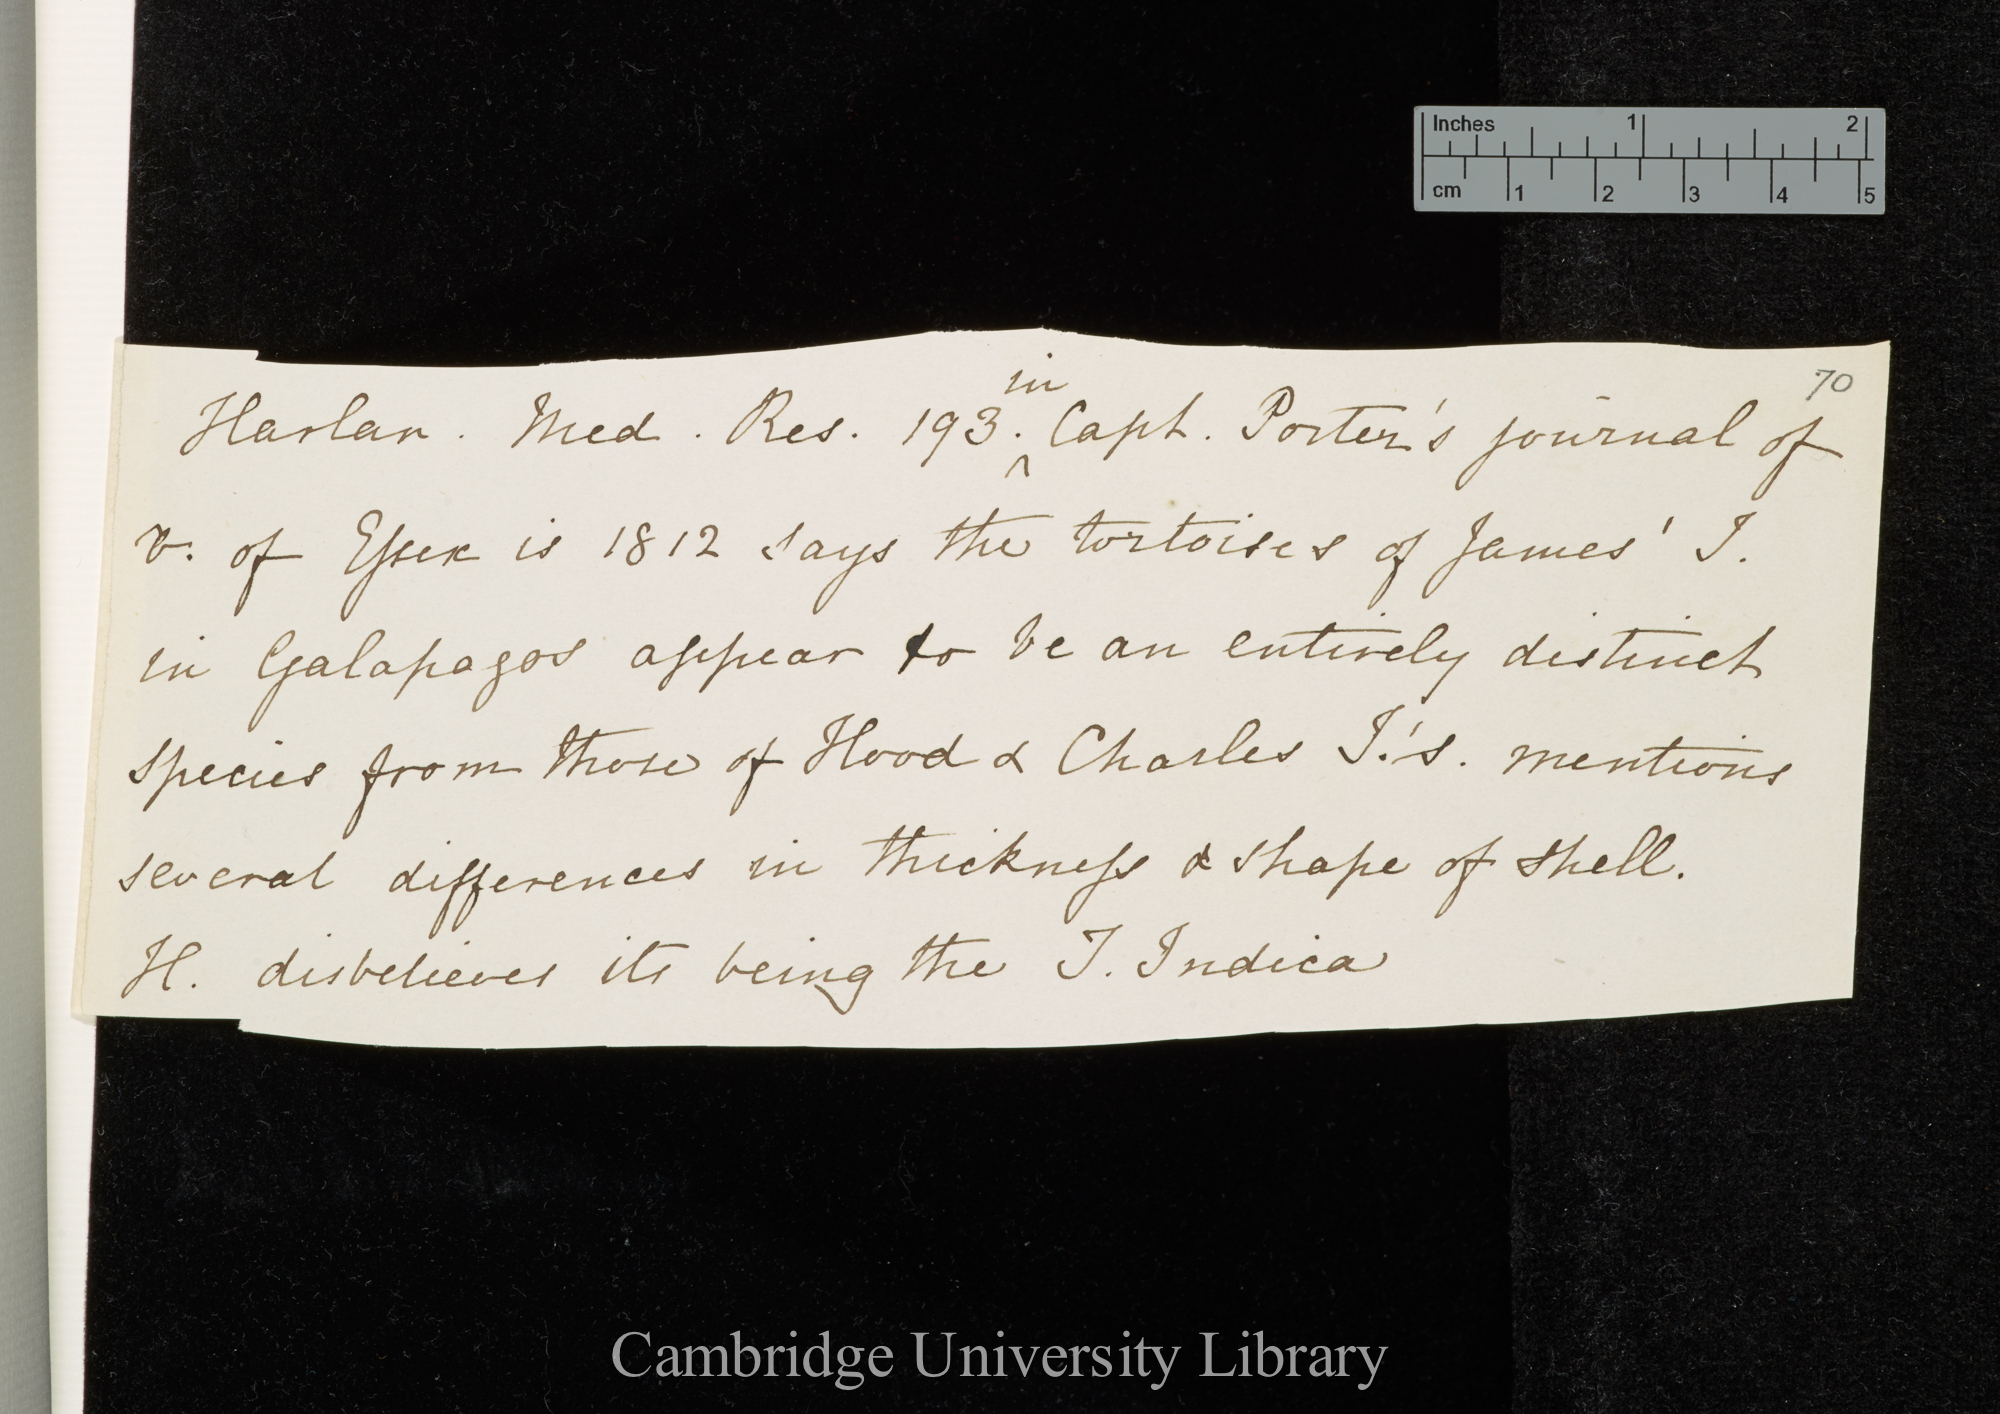 Inches 1 2
cm 1 2 3 4 5
70
in
Harlan. Med. Res. 193. ^ Capt. Porter's journal of
v. of Essex is 1812 says the tortoises of James' I.
in Galapagos appear to be an entirely distinct
species from those of Hood & Charles I.'s. mentions
several differences in thickness & shape of shell.
H. disbelieves its being the T. Indica
Cambridge University Library